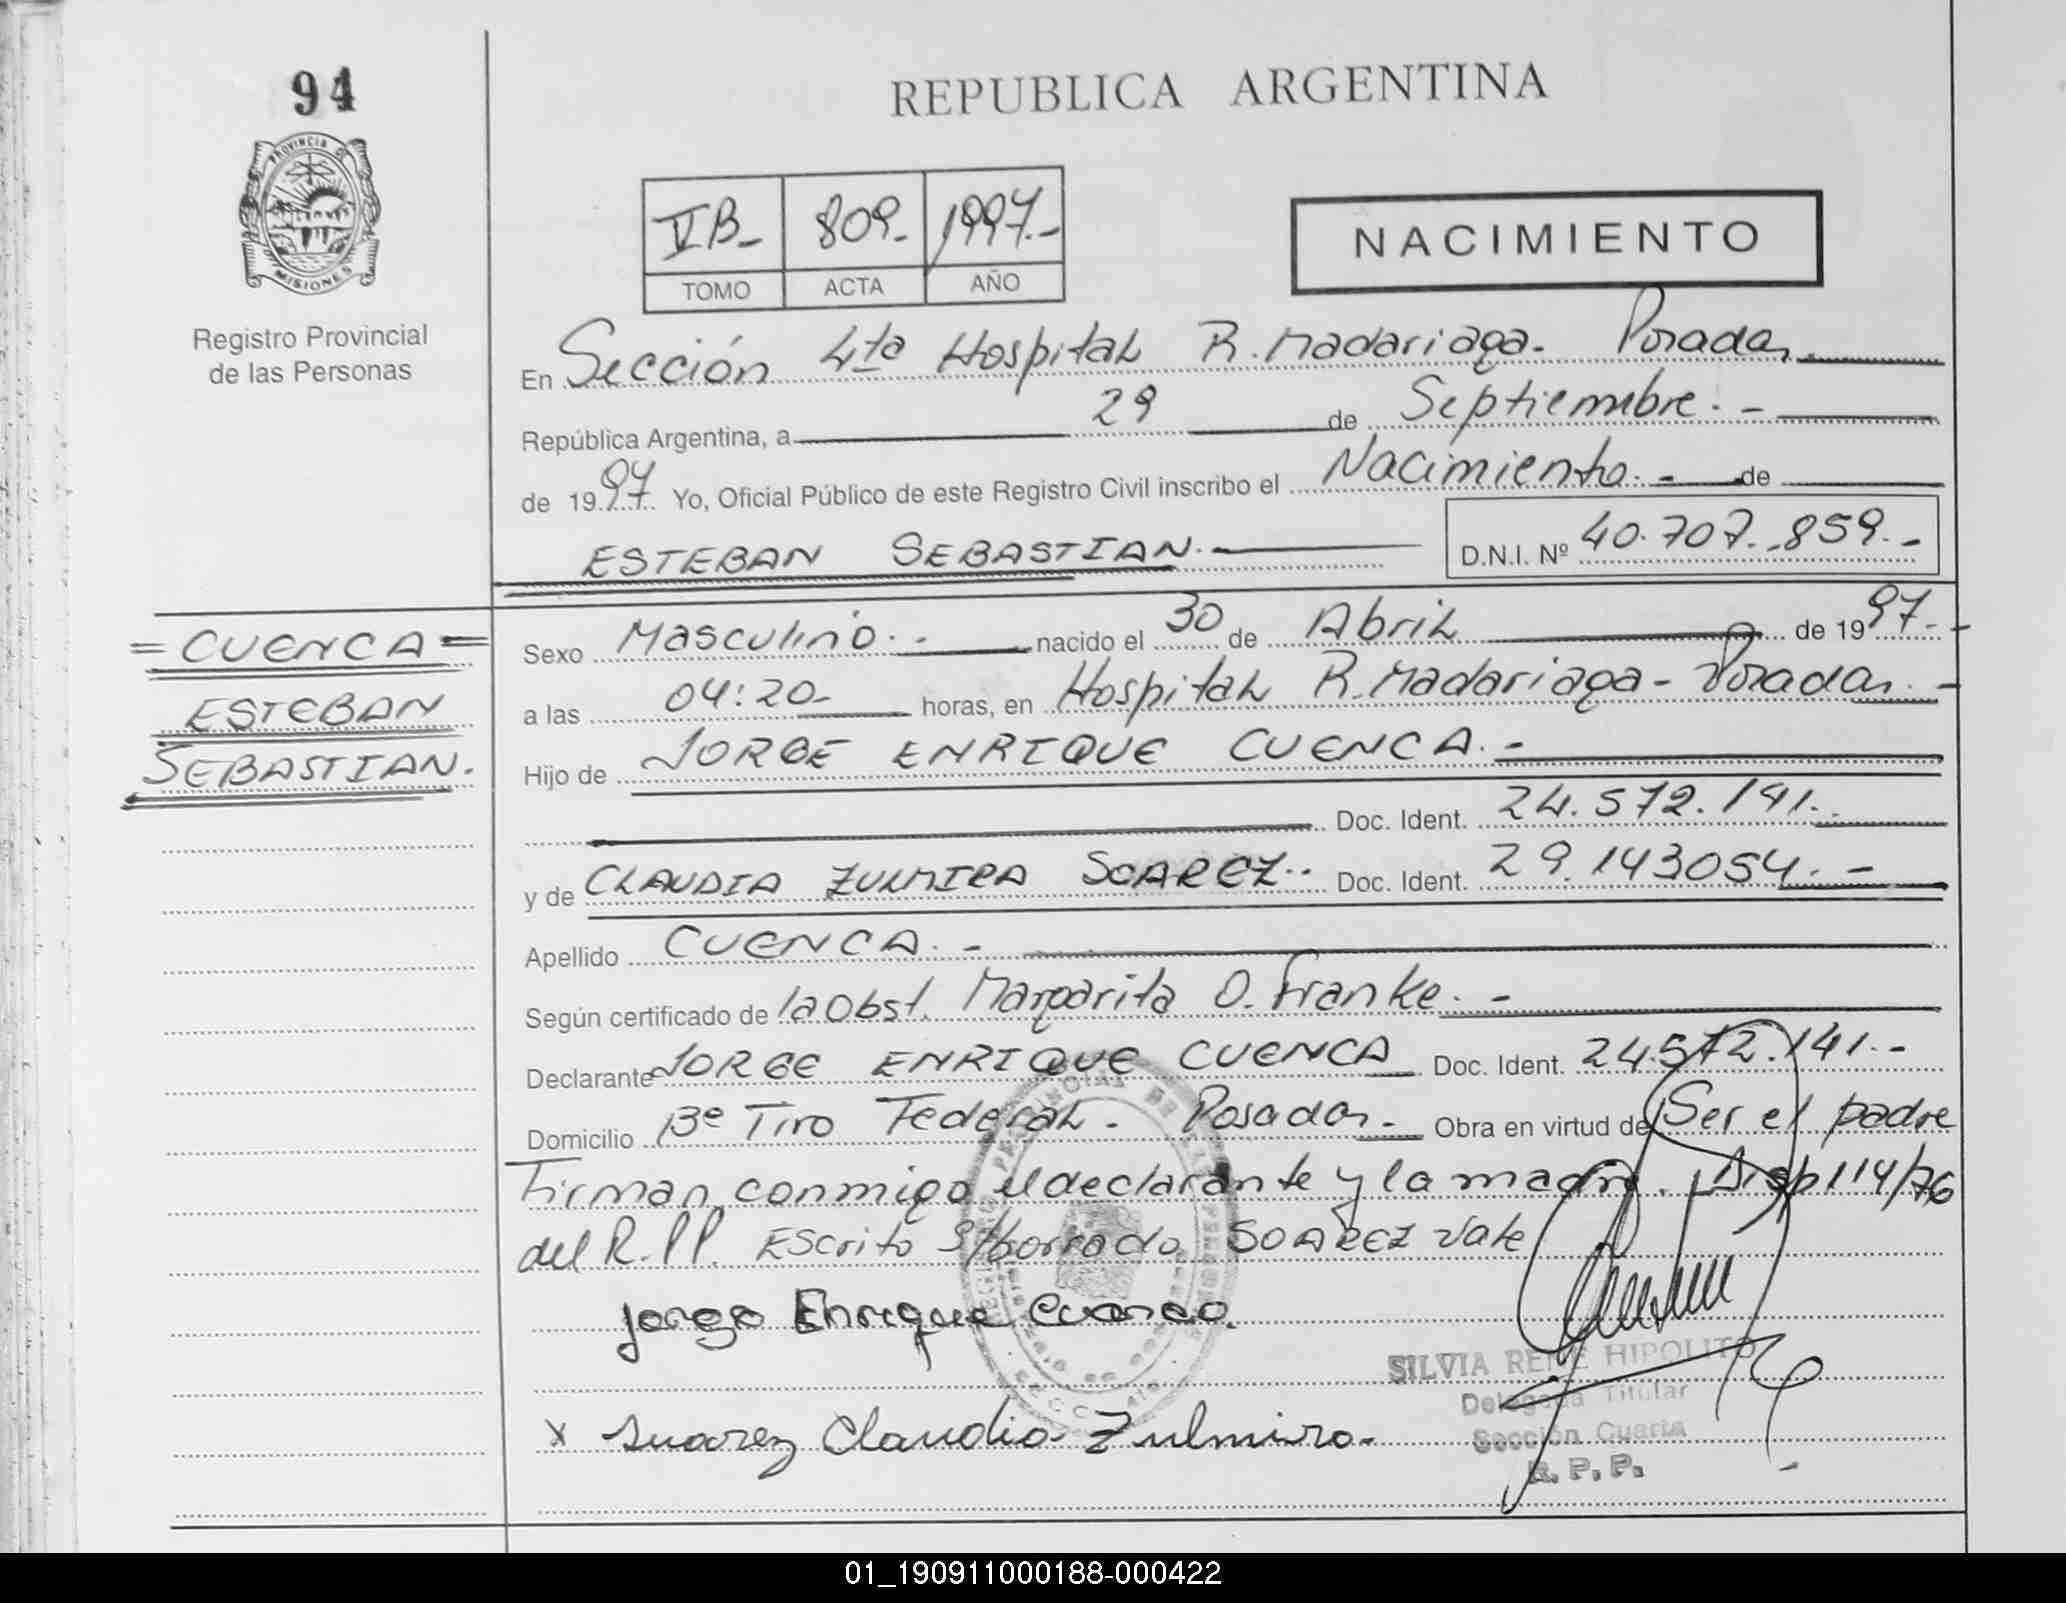 94
REPUBLICA ARGENTINA
PROVINCIA DE
MISIONES
Registro Provincial
de las Personas
VB_ 809_ 1997._
TOMO ACTA AÑO
NACIMIENTO
En Sección 4ta Hospital R. Madariaga - Posadas
República Argentina, a 29 de Septiembre. -
de 1997. Yo, Oficial Público de este Registro Civil inscribo el Nacimiento. - de
ESTEBAN SEBASTIAN. D.N.I. Nº 40.707.859. -
= CUENCA =
ESTEBAN
SEBASTIAN.
Sexo Masculino. - nacido el 30 de Abril de 1997.-
a las 04:20- horas, en Hospital R. Madariaga - Posadas. -
Hijo de JORGE ENRIQUE CUENCA. -
Doc. Ident. 24.572.141.-
y de CLAUDIA ZULMIRA SOAREZ.. Doc. Ident. 29.143054. -
Apellido CUENCA. -
Según certificado de la Obst. Margarita O. Franke. -
Declarante JORGE ENRIQUE CUENCA Doc. Ident. 24.572.141. -
Domicilio Bº Tiro Federal. Posadas. - Obra en virtud de Ser el padre
Firman conmigo el declarante y la madre. Disp 114/76
del R.P.P. Escrito S/borrado SOAREZ Vale
Jorge Enrique Cuenca.
SILVIA RENE HIPOLITO
Delegada Titular
x Suarez Claudia Zulmira.
Sección Cuarta
R.P.P.
01_190911000188-000422